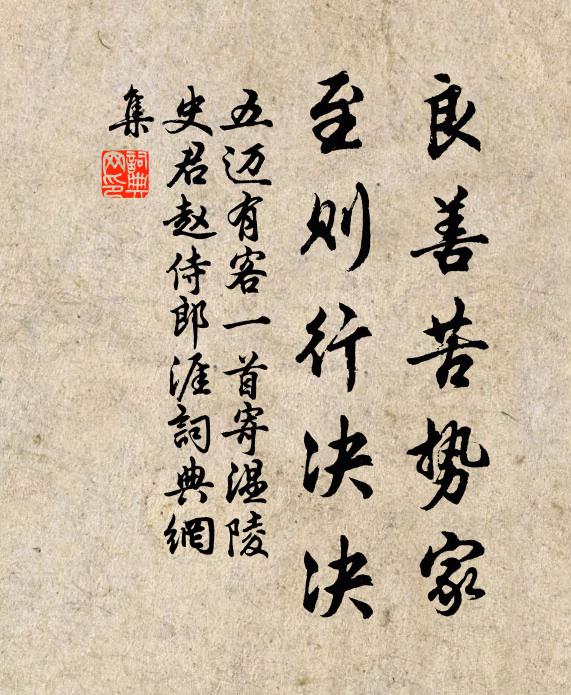 良善苦势家
至则行决决
五迈有客一首寄温陵
史君赵侍郎涯詞典網
集
詞典网印